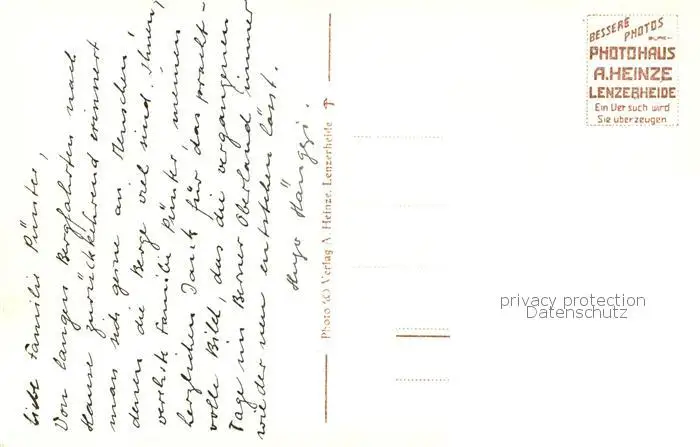 Liebe Familie Pünter,
Von langen Bergfahrten nach
Hause zurückkehrend erinnert
man sich gerne an Menschen,
denen die Berge viel sind. Ihnen,
verehrte Familie Pünter, meinen
herzlichen Dank für das pracht-
volle Bild, das die vergangenen
Tage im Berner Oberland immer
wieder neu entstehen lässt.
Hugo Hänggi.
Photo (C) Verlag A. Heinze, Lenzerheide
BESSERE PHOTOS
PHOTOHAUS
A. HEINZE
LENZERHEIDE
Ein Versuch wird
Sie überzeugen
privacy protection
Datenschutz